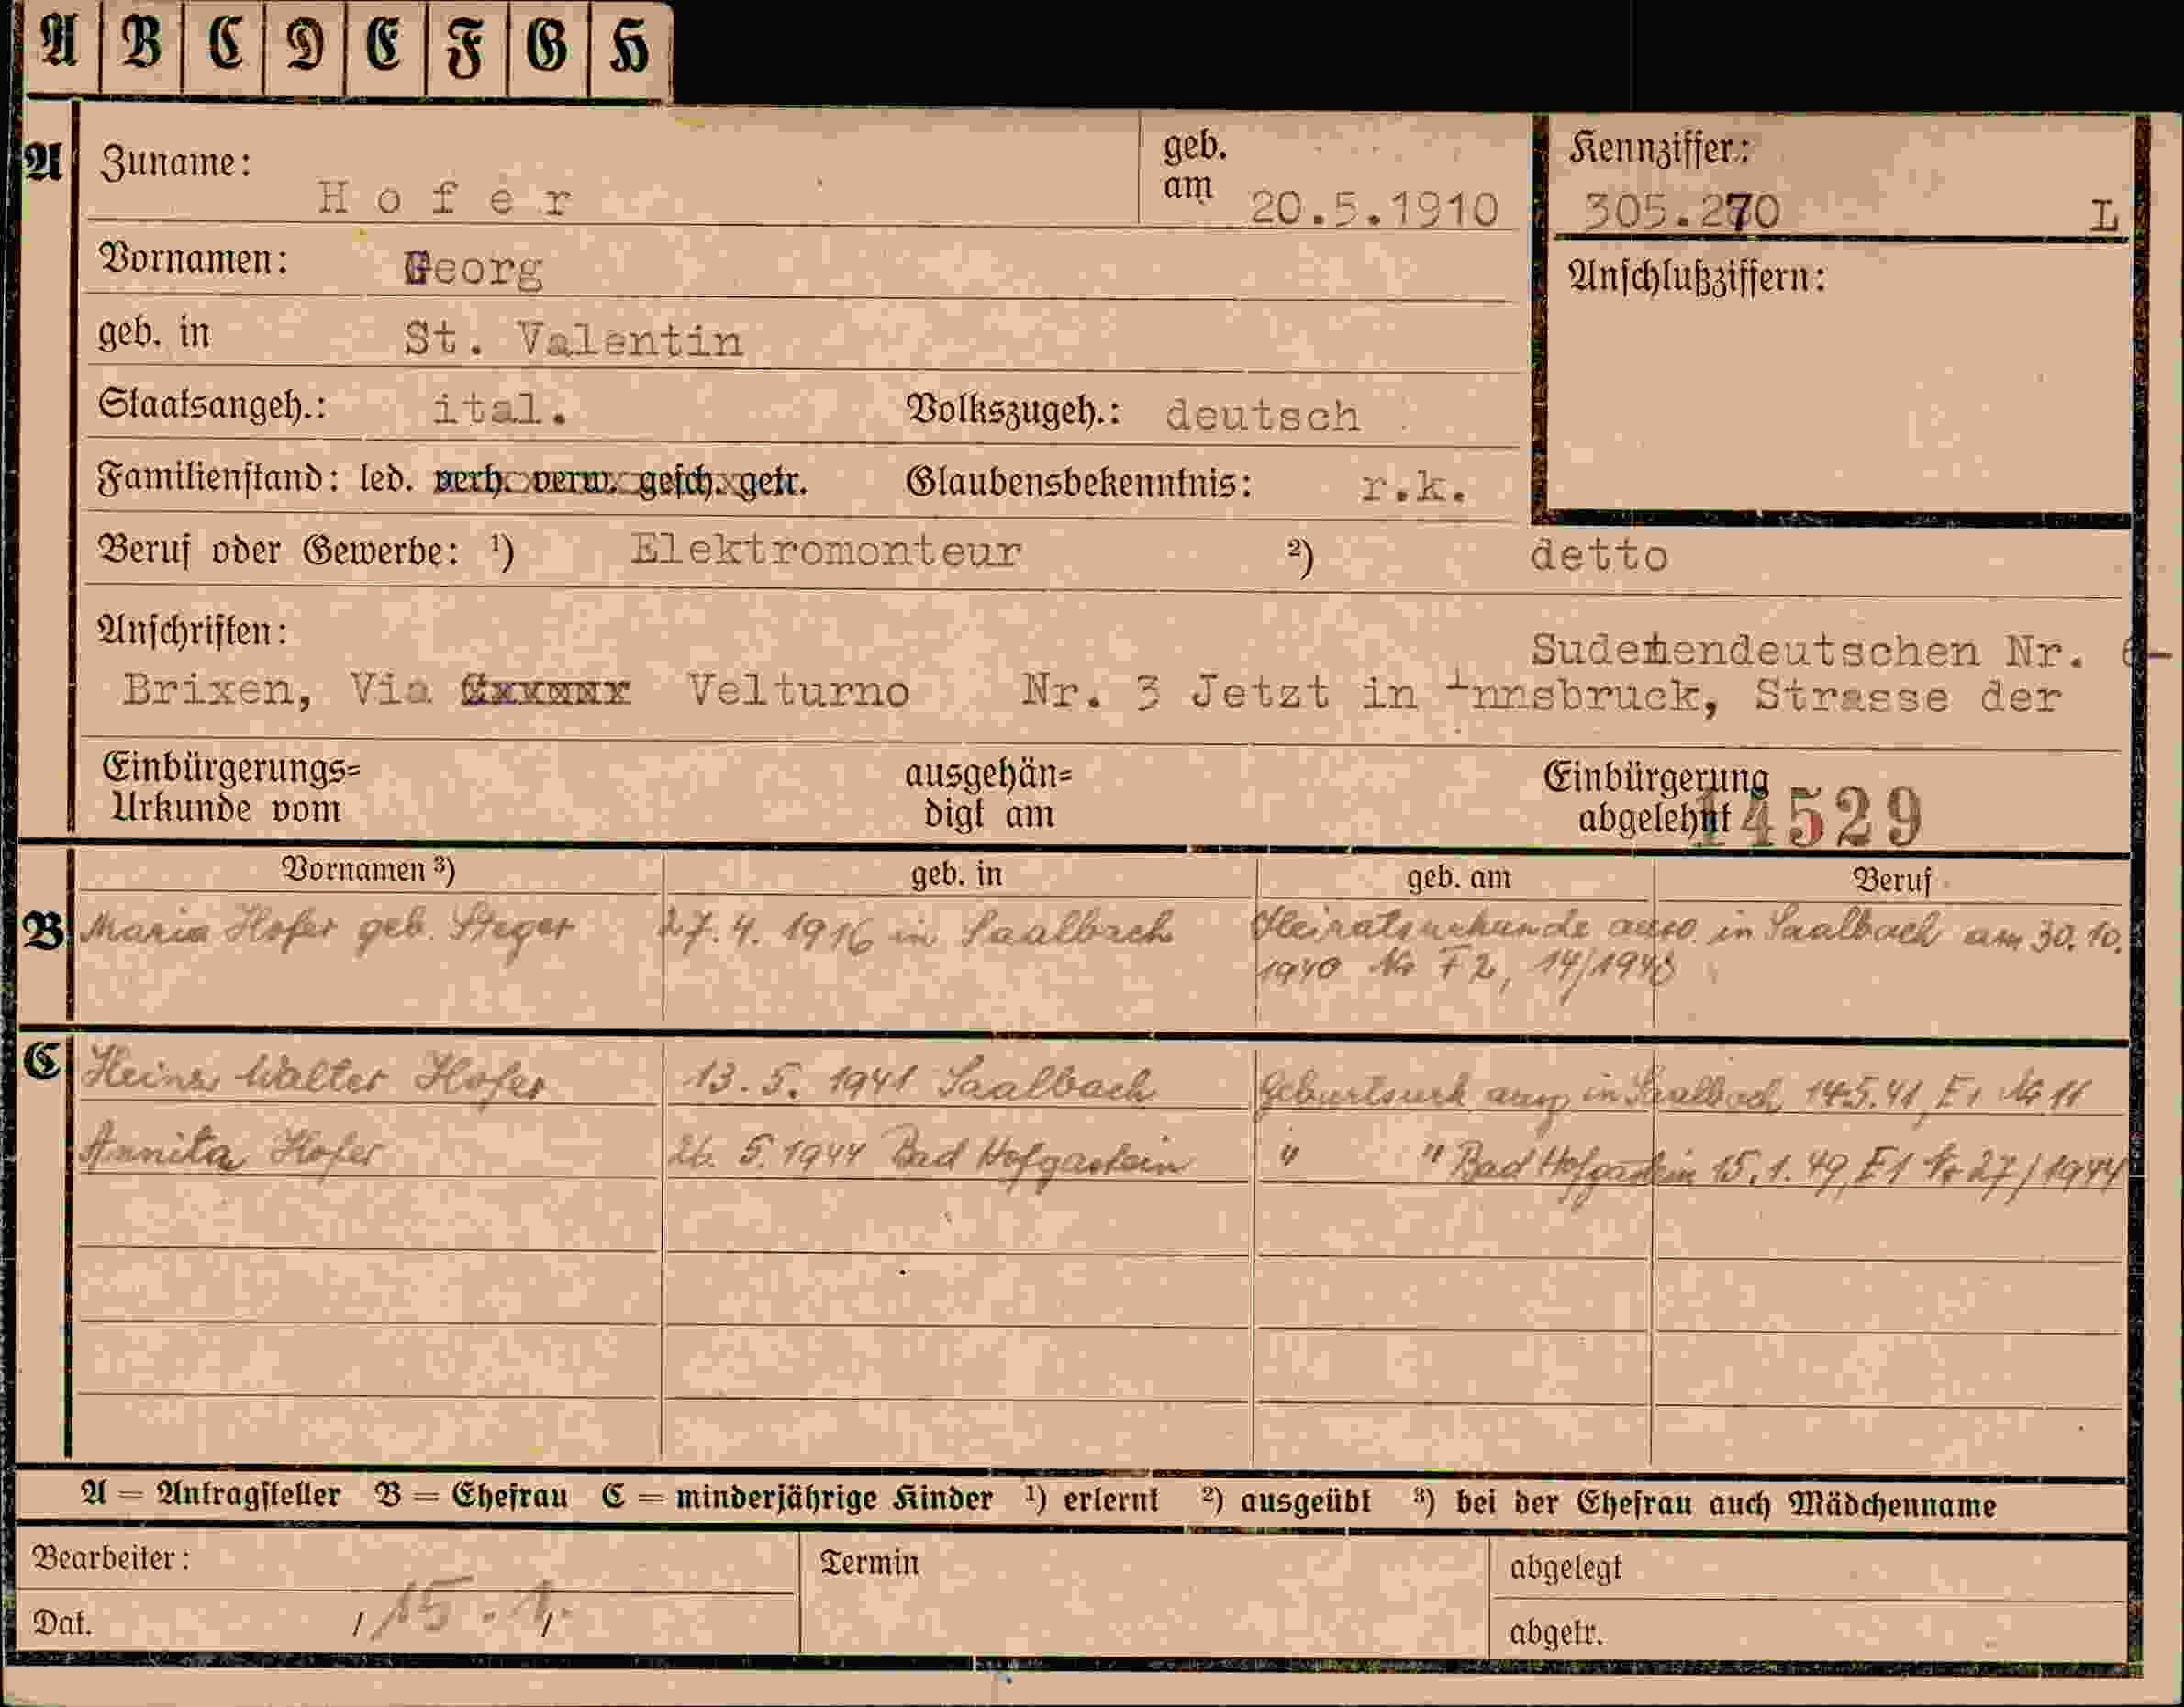 A B C D E F G H
A Zuname: Hofer geb. am 20.5.1910 Kennziffer: 305.270 L
Vornamen: Georg Anschlußziffern:
geb. in St. Valentin
Staatsangeh.: ital. Volkszugeh.: deutsch
Familienstand: led. verh. verw. gesch. getr. Glaubensbekenntnis: r.k.
Beruf oder Gewerbe: ¹) Elektromonteur ²) detto
Anschriften:
Sudetendeutschen Nr. 6-
Brixen, Via Velturno Nr. 3 Jetzt in Innsbruck, Strasse der
Einbürgerungs= ausgehän= Einbürgerung
Urkunde vom digt am abgelehnt 14529
Vornamen ³) geb. in geb. am Beruf
B Maria Hofer geb. Steger 27.4.1916 in Saalbach Heiratsurkunde in Saalbach am 30.10.
1940 Nr F2, 14/1940
C Heinz Walter Hofer 13.5.1941 Saalbach Geburtsurk ausg in Saalbach 14.5.41, E1 Nr 11
Annita Hofer 26.5.1944 Bad Hofgastein " " Bad Hofgastein 15.1.49, E1 Nr 27/1944
A = Antragsteller B = Ehefrau C = minderjährige Kinder ¹) erlernt ²) ausgeübt ³) bei der Ehefrau auch Mädchenname
Bearbeiter: Termin abgelegt
Dat. 15.1. abgetr.